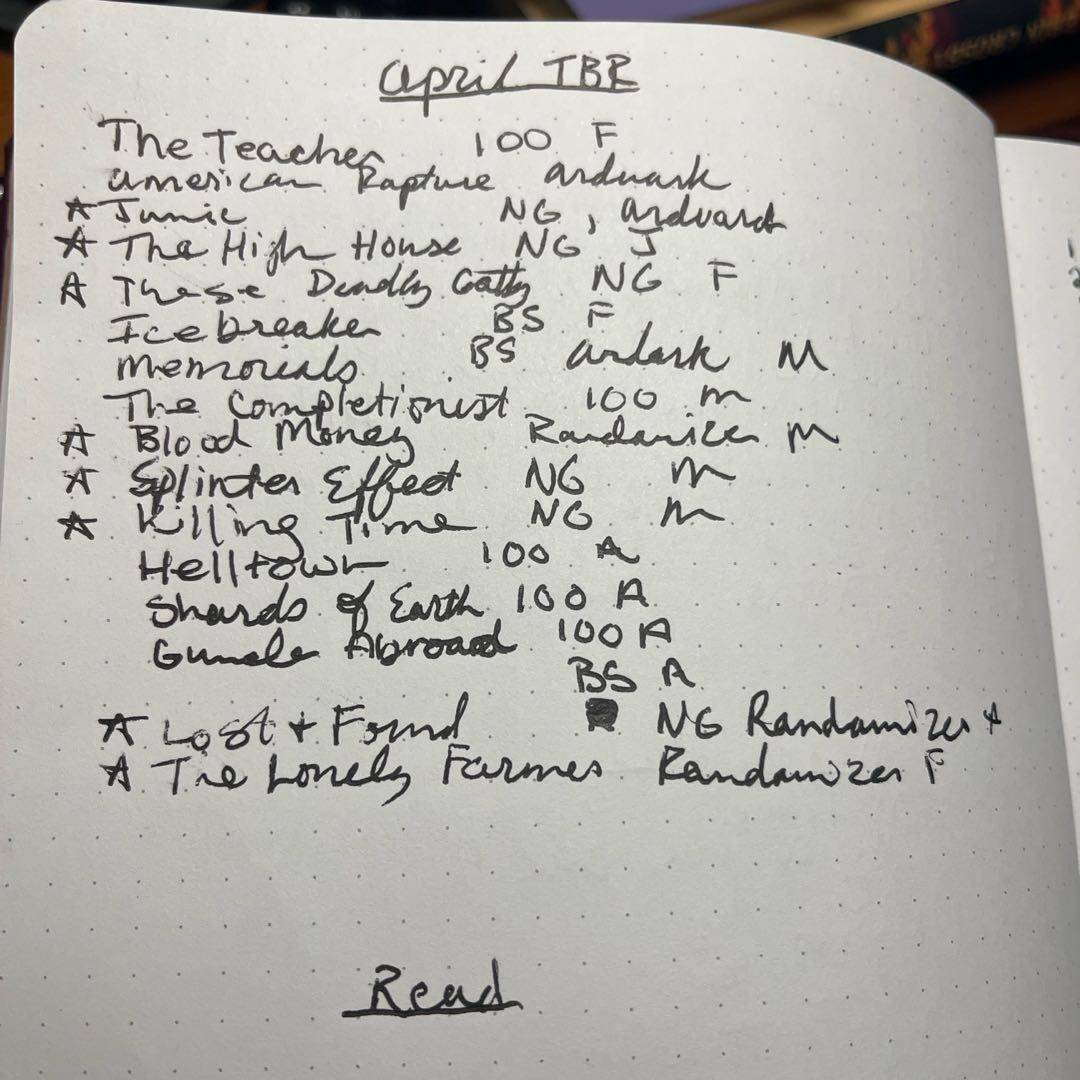 April TBR
The Teacher 100 F
American Rapture arduark
☆ Junie NG, arduark
☆ The High House NG J
☆ These Deadly NG F
Icebreaker BS F
Memorials BS ardark M
The Completionist 100 M
☆ Blood Money Randamizer M
☆ Splinter Effect NG M
☆ Killing Time NG M
Helltown 100 A
Shards of Earth 100 A
Guncle Abroad 100 A
BS A
☆ Lost + Found NG Randamizer
☆ The Lonely Farmer Randamizer F
Read